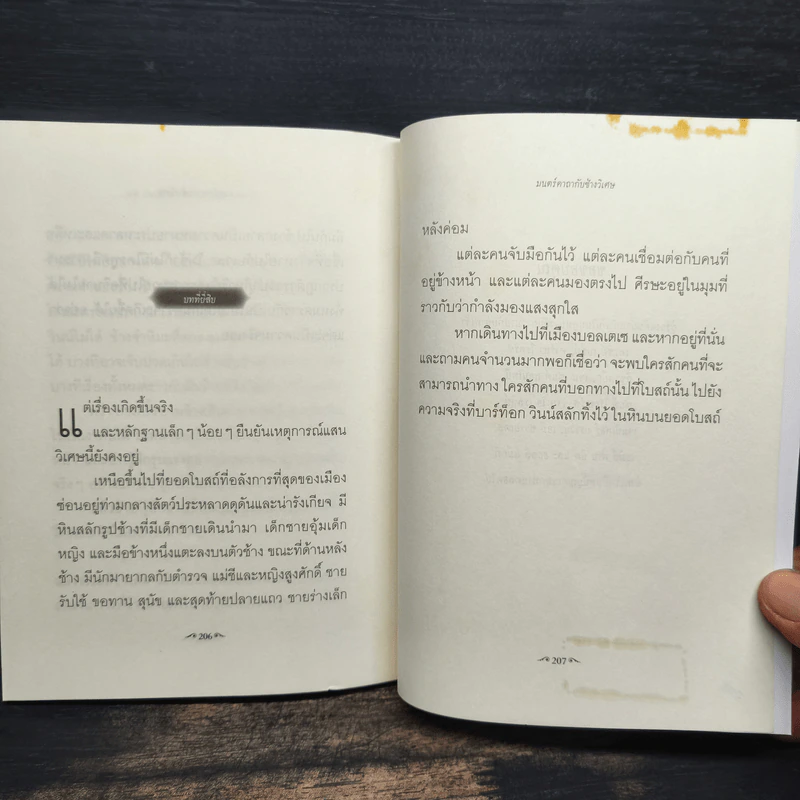 บทที่ยี่สิบ
แต่เรื่องเกิดขึ้นจริง
และหลักฐานเล็ก ๆ น้อย ๆ ยืนยันเหตุการณ์แสน
วิเศษนี้ยังคงอยู่
เหนือขึ้นไปที่ยอดโบสถ์ที่อลังการที่สุดของเมือง
ซ่อนอยู่ท่ามกลางสัตว์ประหลาดดุดันและน่ารังเกียจ มี
หินสลักรูปช้างที่มีเด็กชายเดินนำมา เด็กชายอุ้มเด็ก
หญิง และมือข้างหนึ่งแตะลงบนตัวช้าง ขณะที่ด้านหลัง
ช้าง มีนักมายากลกับตำรวจ แม่ชีและหญิงสูงศักดิ์ ชาย
รับใช้ ขอทาน สุนัข และสุดท้ายปลายแถว ชายร่างเล็ก
206
มนตร์คาถากับช้างวิเศษ
หลังค่อม
แต่ละคนจับมือกันไว้ แต่ละคนเชื่อมต่อกับคนที่
อยู่ข้างหน้า และแต่ละคนมองตรงไป ศีรษะอยู่ในมุมที่
ราวกับว่ากำลังมองแสงสุกใส
หากเดินทางไปที่เมืองบอลเตเซ และหากอยู่ที่นั่น
และถามคนจำนวนมากพอก็เชื่อว่า จะพบใครสักคนที่จะ
สามารถนำทาง ใครสักคนที่บอกทางไปที่โบสถ์นั้น ไปยัง
ความจริงที่บาร์ท็อก วินน์สลักทิ้งไว้ ในหินบนยอดโบสถ์
207